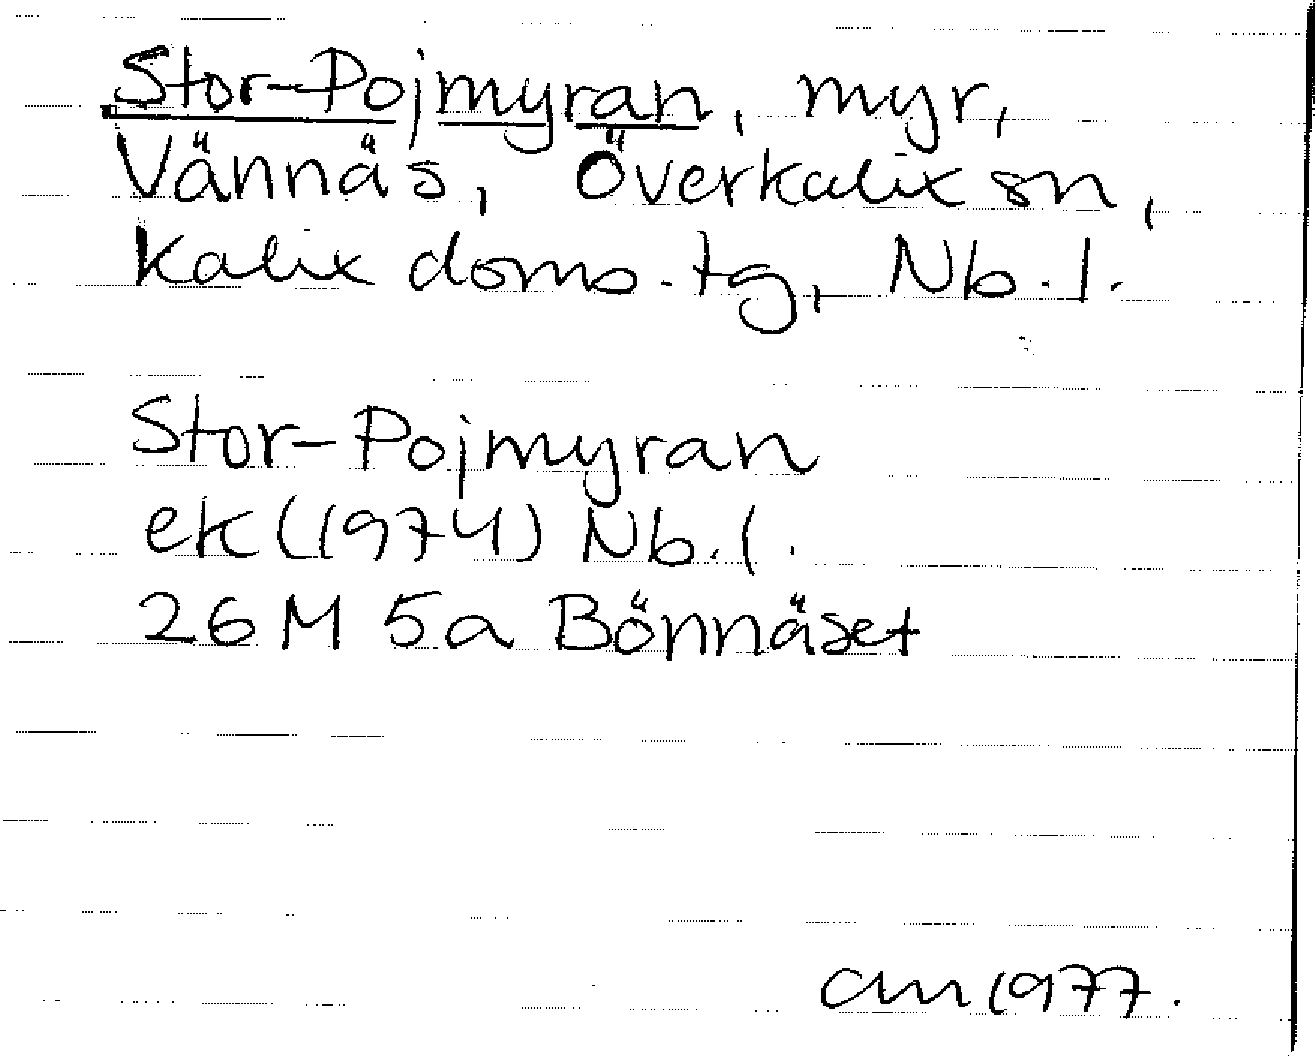 Stor-Pojmyran, myr,
Vännäs, Överkalix sn,
Kalix doms. tg, Nb. l.
Stor-Pojmyran
ek (1974) Nb. l.
26 M 5a Bönnäset
am 1977.